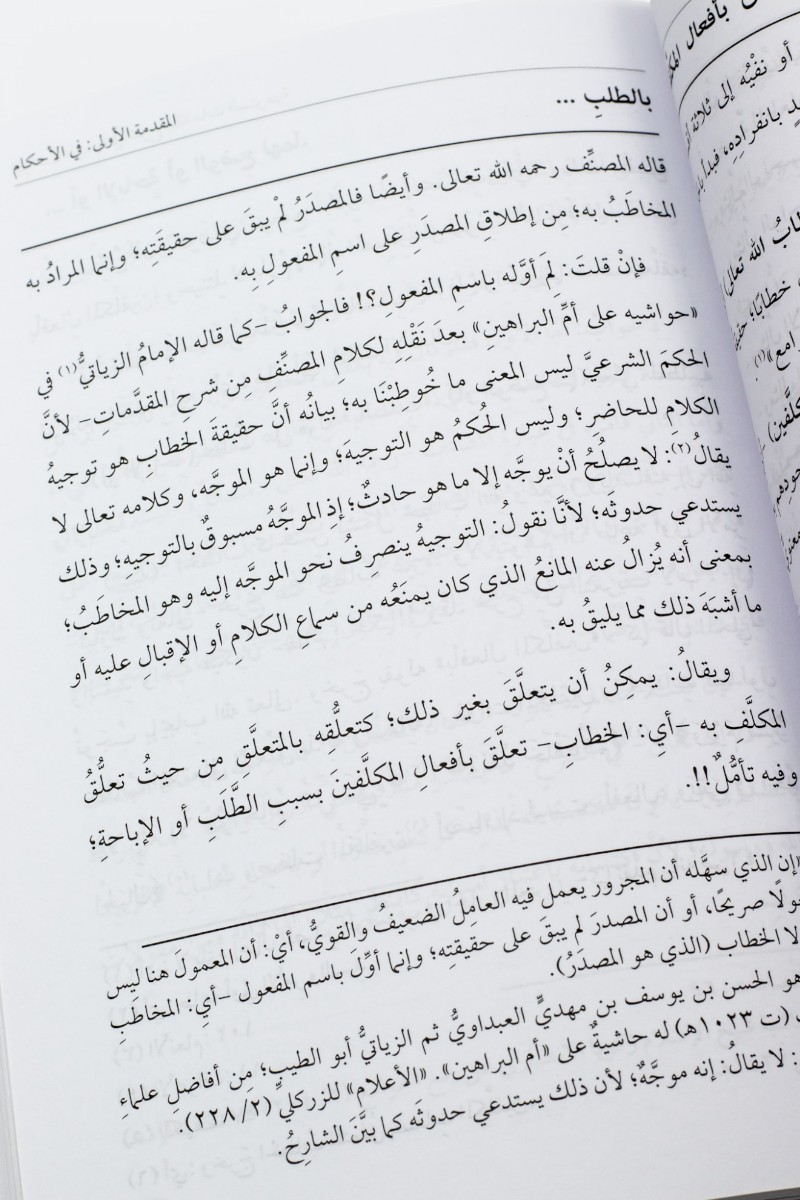 بالطلبِ ... المقدمة الأولى: في الأحكام
قاله المصنِّف رحمه الله تعالى. وأيضًا فالمصدَرُ لمْ يبقَ على حقيقتِه؛ وإنما المرادُ به
المخاطَبُ به؛ مِن إطلاقِ المصدَرِ على اسمِ المفعولِ بِه.
فإنْ قلتَ: لِمَ أوَّله باسمِ المفعولِ؟! فالجوابُ –كما قاله الإمامُ الزياتيُّ(١) في
«حواشيه على أمِّ البراهين» بعدَ نَقْلِهِ لكلامِ المصنِّفِ مِن شرحِ المقدَّماتِ– لأنَّ
الحكمَ الشرعيَّ ليس المعنى ما خُوطِبْنَا به؛ بيانُه أنَّ حقيقةَ الخطابِ هو توجيهُ
الكلامِ للحاضرِ؛ وليس الحُكمُ هو التوجيهَ؛ وإنما هو الموجَّه، وكلامه تعالى لا
يقالُ(٢): لا يصلُحُ أنْ يوجَّه إلا ما هو حادثٌ؛ إذِ الموجَّهُ مسبوقٌ بالتوجيهِ؛ وذلك
يستدعي حدوثَه؛ لأنَّا نقولُ: التوجيهُ ينصرِفُ نحو الموجَّه إليه وهو المخاطَبُ؛
بمعنى أنه يُزالُ عنه المانعُ الذي كان يمنَعُه من سماعِ الكلامِ أو الإقبالِ عليه أو
ما أشبَهَ ذلك مما يليقُ به.
ويقالُ: يمكِنُ أن يتعلَّقَ بغير ذلك؛ كتعلُّقِه بالمتعلَّقِ مِن حيثُ تعلُّقُ
المكلَّفِ به –أي: الخطابِ– تعلَّقَ بأفعالِ المكلَّفينَ بسببِ الطَّلَبِ أو الإباحةِ؛
وفيه تأمُّلٌ!!.
إن الذي سهَّله أن المجرور يعمل فيه العامِلُ الضعيفُ والقويُّ، أيْ: أن المعمولَ هنا ليس
صريحًا، أو أن المصدرَ لم يبقَ على حقيقتِه؛ وإنما أوِّلَ باسم المفعول –أي: المخاطَبِ
لا الخطاب (الذي هو المصدَرُ).
هو الحسن بن يوسف بن مهديٍّ العبداويُّ ثم الزياتيُّ أبو الطيبِ؛ مِن أفاضلِ علماءِ
(ت ١٠٢٣هـ) له حاشيةٌ على «أم البراهين». «الأعلام» للزركلي (٢/ ٢٢٨).
لا يقالُ: إنه موجَّهٌ؛ لأن ذلك يستدعي حدوثَه كما بيَّنَ الشارِحُ.
بأفعال
أو نفْيُه إلى ثلاثة
بانفرادِه، فبدأ
الله تعالى
خطابًا؛